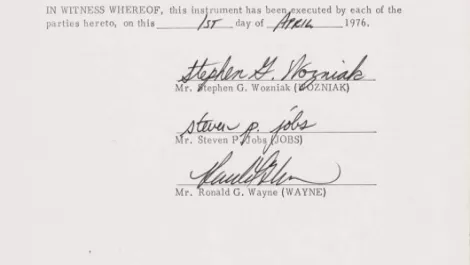 IN WITNESS WHEREOF, this instrument has been executed by each of the
parties hereto, on this 1ST day of APRIL 1976.
Stephen G. Wozniak
Mr. Stephen G. Wozniak (WOZNIAK)
steven p. jobs
Mr. Steven P. Jobs (JOBS)
Mr. Ronald G. Wayne (WAYNE)